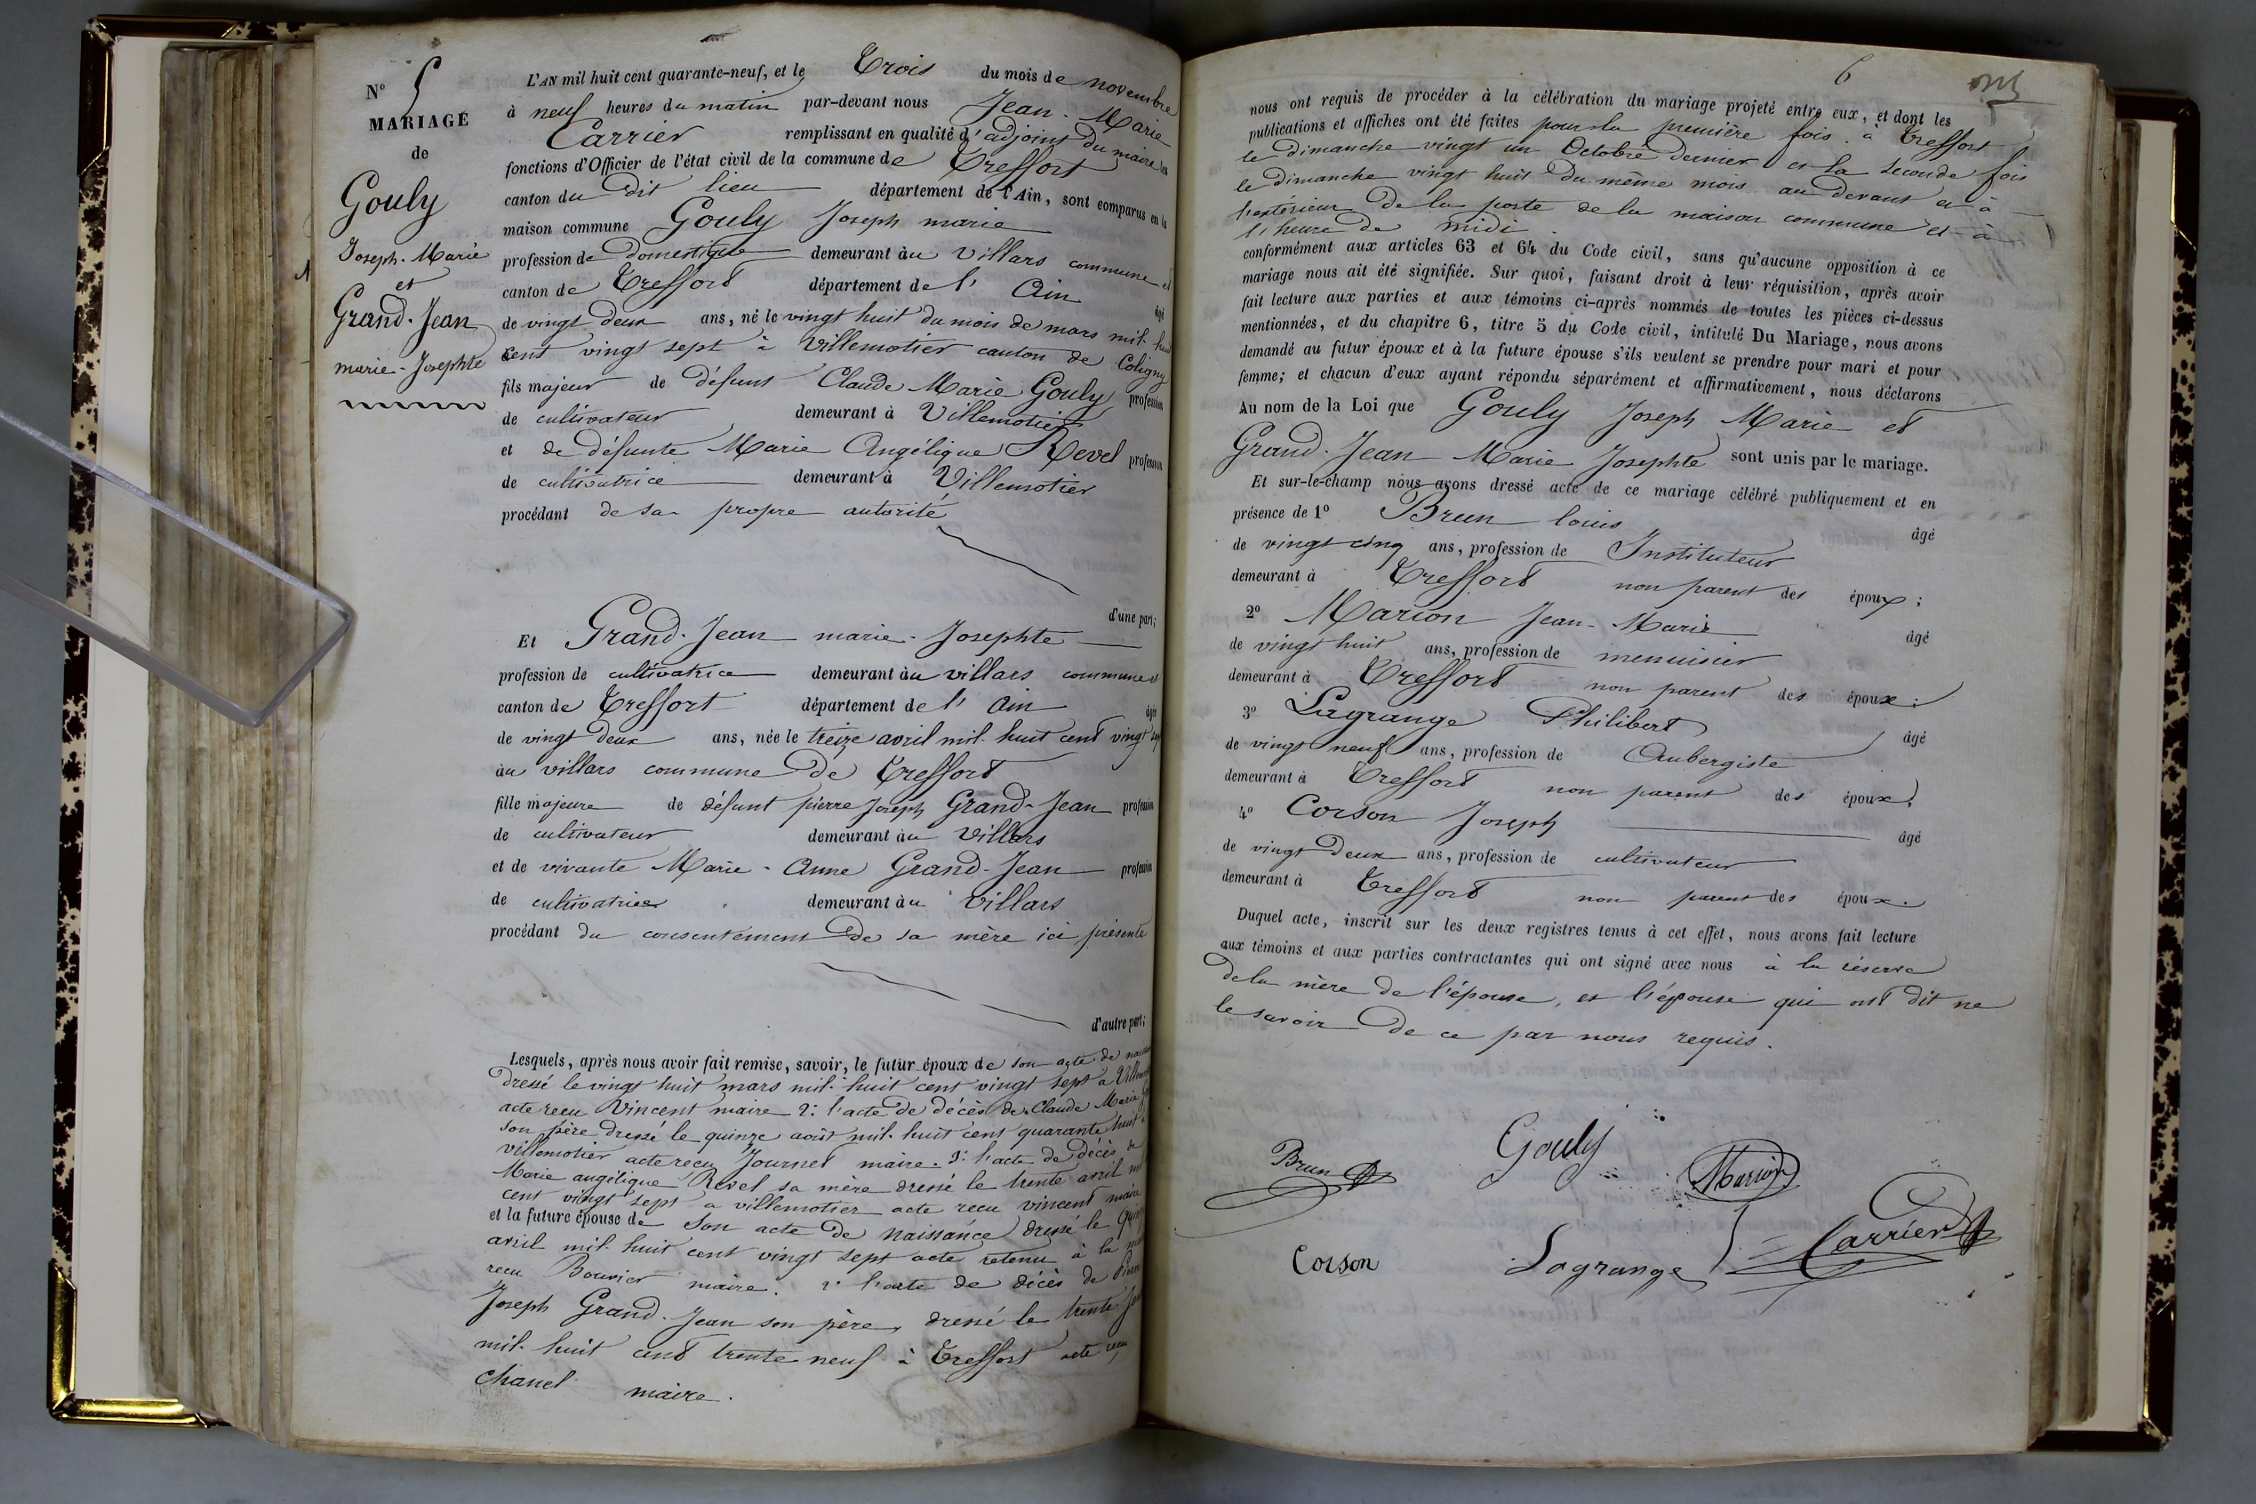 N° 5
MARIAGE
de
Gouly
Joseph-Marie
et
Grand-Jean
marie-Josephte
L'AN mil huit cent quarante-neuf, et le Trois du mois de novembre
à neuf heures du matin par-devant nous Jean-Marie
Carrier remplissant en qualité d'adjoint du maire les
fonctions d'Officier de l'état civil de la commune de Treffort
canton du dit lieu département de l'Ain, sont comparus en la
maison commune Gouly Joseph marie
profession de domestique demeurant au Villars commune et
canton de Treffort département de l'Ain âgé
de vingt deux ans, né le vingt huit du mois de mars mil huit
cent vingt sept à Villemotier canton de Coligny
fils majeur de défunt Claude Marie Gouly profession
de cultivateur demeurant à Villemotier
et de défunte Marie Angélique Revel profession
de cultivatrice demeurant à Villemotier
procédant de sa propre autorité
d'une part;
Et Grand-Jean marie-Josephte
profession de cultivatrice demeurant au villars commune et
canton de Treffort département de l'Ain âgée
de vingt deux ans, née le treize avril mil huit cent vingt sept
au villars commune de Treffort
fille majeure de défunt pierre Joseph Grand-Jean profession
de cultivateur demeurant au Villars
et de vivante Marie-Anne Grand-Jean profession
de cultivatrice demeurant au Villars
procédant du consentement de sa mère ici présente
d'autre part;
Lesquels, après nous avoir fait remise, savoir, le futur époux de son acte de
dressé le vingt huit mars mil huit cent vingt sept a
acte recu Vincent maire 2: l'acte de décès de Claude Marie
son père dressé le quinze août mil huit cent quarante huit à
villemotier acte recu Journet maire. 3: l'acte de décès de
Marie angélique Revel sa mère dressé le trente avril mil
cent vingt sept a villemotier acte recu vincent maire
et la future épouse de son acte de naissance dressé le
avril mil huit cent vingt sept acte retenu à la
recu Bouvier maire. 2: l'acte de décès de Pierre
Joseph Grand-Jean son père, dressé le trente
mil huit cent trente neuf à Treffort acte recu
Chanel maire.
6
nous ont requis de procéder à la célébration du mariage projeté entre eux, et dont les
publications et affiches ont été faites pour la première fois à Treffort
le dimanche vingt un Octobre dernier et la seconde fois
le dimanche vingt huit du même mois au devant et à
l'extérieur de la porte de la maison commune et à
l'heure de midi.
conformément aux articles 63 et 64 du Code civil, sans qu'aucune opposition à ce
mariage nous ait été signifiée. Sur quoi, faisant droit à leur réquisition, après avoir
fait lecture aux parties et aux témoins ci-après nommés de toutes les pièces ci-dessus
mentionnées, et du chapitre 6, titre 5 du Code civil, intitulé Du Mariage, nous avons
demandé au futur époux et à la future épouse s'ils veulent se prendre pour mari et pour
femme; et chacun d'eux ayant répondu séparément et affirmativement, nous déclarons
Au nom de la Loi que Gouly Joseph Marie et
Grand-Jean Marie Josephte sont unis par le mariage.
Et sur-le-champ nous avons dressé acte de ce mariage célébré publiquement et en
présence de 1° Brun louis âgé
de vingt cinq ans, profession de Instituteur
demeurant à Treffort non parent des époux;
2° Marion Jean-Marie âgé
de vingt huit ans, profession de menuisier
demeurant à Treffort non parent des époux;
3° Lagrange Philibert âgé
de vingt neuf ans, profession de Aubergiste
demeurant à Treffort non parent des époux;
4° Corson Joseph âgé
de vingt deux ans, profession de cultivateur
demeurant à Treffort non parent des époux.
Duquel acte, inscrit sur les deux registres tenus à cet effet, nous avons fait lecture
aux témoins et aux parties contractantes qui ont signé avec nous à la réserve
de la mère de l'épouse, et l'épouse qui ont dit ne
le savoir de ce par nous requis.
Gouly
Brun
Marion
Carrier
Corson
Lagrange